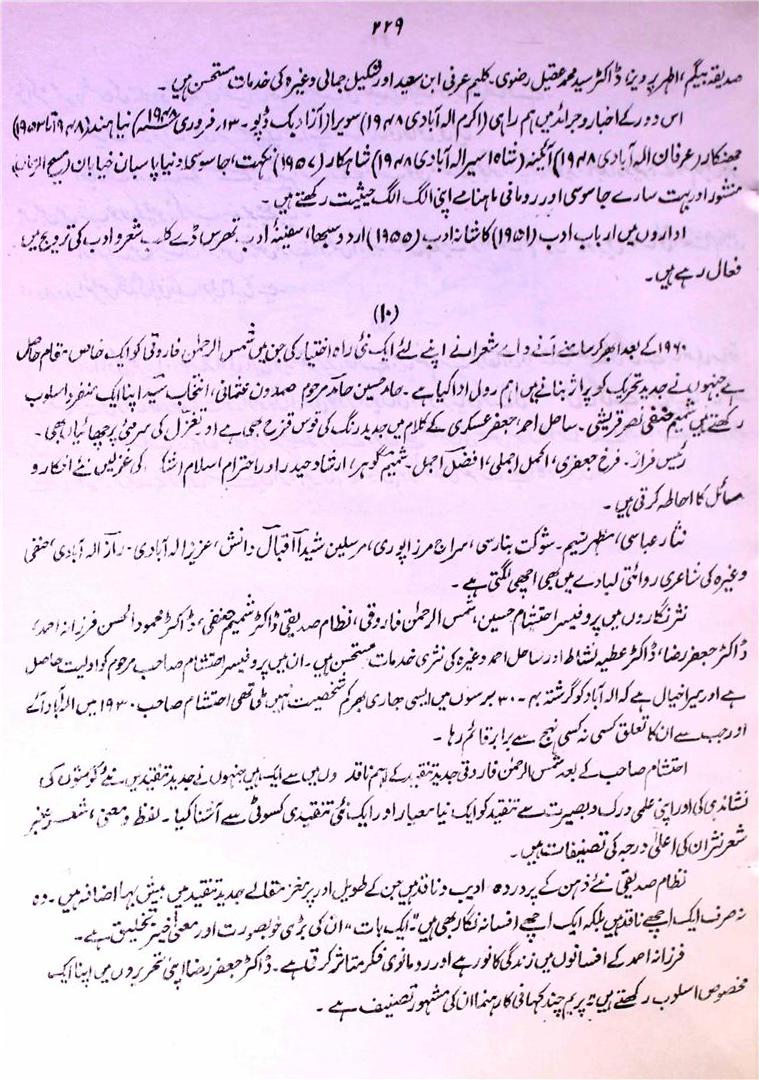 ۲۲۹
صدیقہ بیگم، اظہر پرویز، ڈاکٹر سید محمد عقیل رضوی۔ کلیم عرفی ابن سعید اور شکیل جمالی وغیرہ کی خدمات مستحسن ہیں۔
اس دور کے اخبار و جرائد میں ہم راہی (اکرم الہ آبادی ۱۹۴۸) سویرا (آزاد بک ڈپو۔ ۱۳؍ فروری ۱۹۴۸ء) نیا ہند (۱۹۴۸ تا ۱۹۵۲)
جھنکار (عرفان الہ آبادی ۱۹۴۸) آئینہ (شاہ اسیر الہ آبادی ۱۹۴۸) شاہکار (۱۹۵۷) نکہت، جاسوسی دنیا پاسبان خیابان (مسیح الزماں)
منشور اور بہت سارے جاسوسی اور رومانی ماہنامے اپنی الگ الگ حیثیت رکھتے ہیں۔
اداروں میں ارباب ادب (۱۹۵۱) کاشانہ ادب (۱۹۵۵) اردو سبھا، سفینۂ ادب تھرس ڈے کلب شعر و ادب کی ترویج میں
فعال رہے ہیں۔
(۱۰)
۱۹۶۰ کے بعد ابھر کر سامنے آنے والے شعراء نے اپنے لئے ایک نئی راہ اختیار کی جن میں شمس الرحمٰن فاروقی کو ایک خاص مقام حاصل
ہے جنہوں نے جدید تحریک کو پرواز بنانے میں اہم رول ادا کیا ہے۔ حامد حسین حامد مرحوم عثمانی، انتخاب سید اپنا ایک منفرد اسلوب
رکھتے ہیں شمیم حنفی نصر قریشی۔ ساحل احمد، جعفر عسکری کے کلام میں جدید رنگ کی قوس قزح بھی ہے اور تغزل کی سرمئی پرچھائیاں بھی۔
رئیس فراز۔ فرخ جعفری، اکمل اجملی، افضل اجمل۔ شمیم گوہر، ارشاد حیدر اور احترام اسلام کی غزلیں نئے افکار و
مسائل کا احاطہ کرتی ہیں۔
نثار عباسی، مظہر نسیم۔ شوکت بنارسی، سراج مرزا پوری، مرسلین شیدا اقبال دانش، عزیز الہ آبادی۔ راز الہ آبادی، حنفی
وغیرہ کی شاعری روائتی لبادے میں بھی اچھی لگتی ہے۔
نثر نگاروں میں پروفیسر احتشام حسین، شمس الرحمٰن فاروقی، نظام صدیقی ڈاکٹر شمیم حنفی، ڈاکٹر محمود الحسن فرزانہ احمد،
ڈاکٹر جعفر رضا، ڈاکٹر عطیہ نشاط اور ساحل احمد وغیرہ کی نثری خدمات مستحسن ہیں۔ ان میں پروفیسر احتشام صاحب مرحوم کو اولیت حاصل
ہے اور میرا خیال ہے کہ الہ آباد کو گزشتہ ۳۰ برسوں میں ایسی بھاری بھرکم شخصیت نہیں ملی تھی احتشام صاحب ۱۹۳۰ میں الہ آباد آئے
اور جب سے ان کا تعلق کسی نہ کسی نہج سے برابر قائم رہا۔
احتشام صاحب کے بعد شمس الرحمٰن فاروقی جدید تنقید کے اہم ناقدوں میں سے ایک ہیں جنہوں نے جدید تنقید میں نئے گوشوں کی
نشاندہی کی اور اپنی علمی درک و بصیرت سے تنقید کو ایک نیا معیار اور ایک نئی تنقیدی کسوٹی سے آشنا کیا۔ لفظ و معنی، شعر غیر
شعر نثر ان کی اعلیٰ درجہ کی تصنیفات ہیں۔
نظام صدیقی نئے ذہن کے پروردہ ادیب و ناقد ہیں جن کے طویل اور پر مغز مقالے جدید تنقید میں بیش بہا اضافہ ہیں۔ وہ
نہ صرف ایک اچھے ناقد ہیں بلکہ ایک اچھے افسانہ نگار بھی ہیں "ایک بات" ان کی بڑی خوبصورت اور معنی خیز تخلیق ہے۔
فرزانہ احمد کے افسانوں میں زندگی کا نور ہے اور رومانوی فکر متاثر کرتا ہے۔ ڈاکٹر جعفر رضا اپنی تحریروں میں اپنا ایک
مخصوص اسلوب رکھتے ہیں۔ پریم چند کہانی کا رہنما ان کی مشہور تصنیف ہے۔